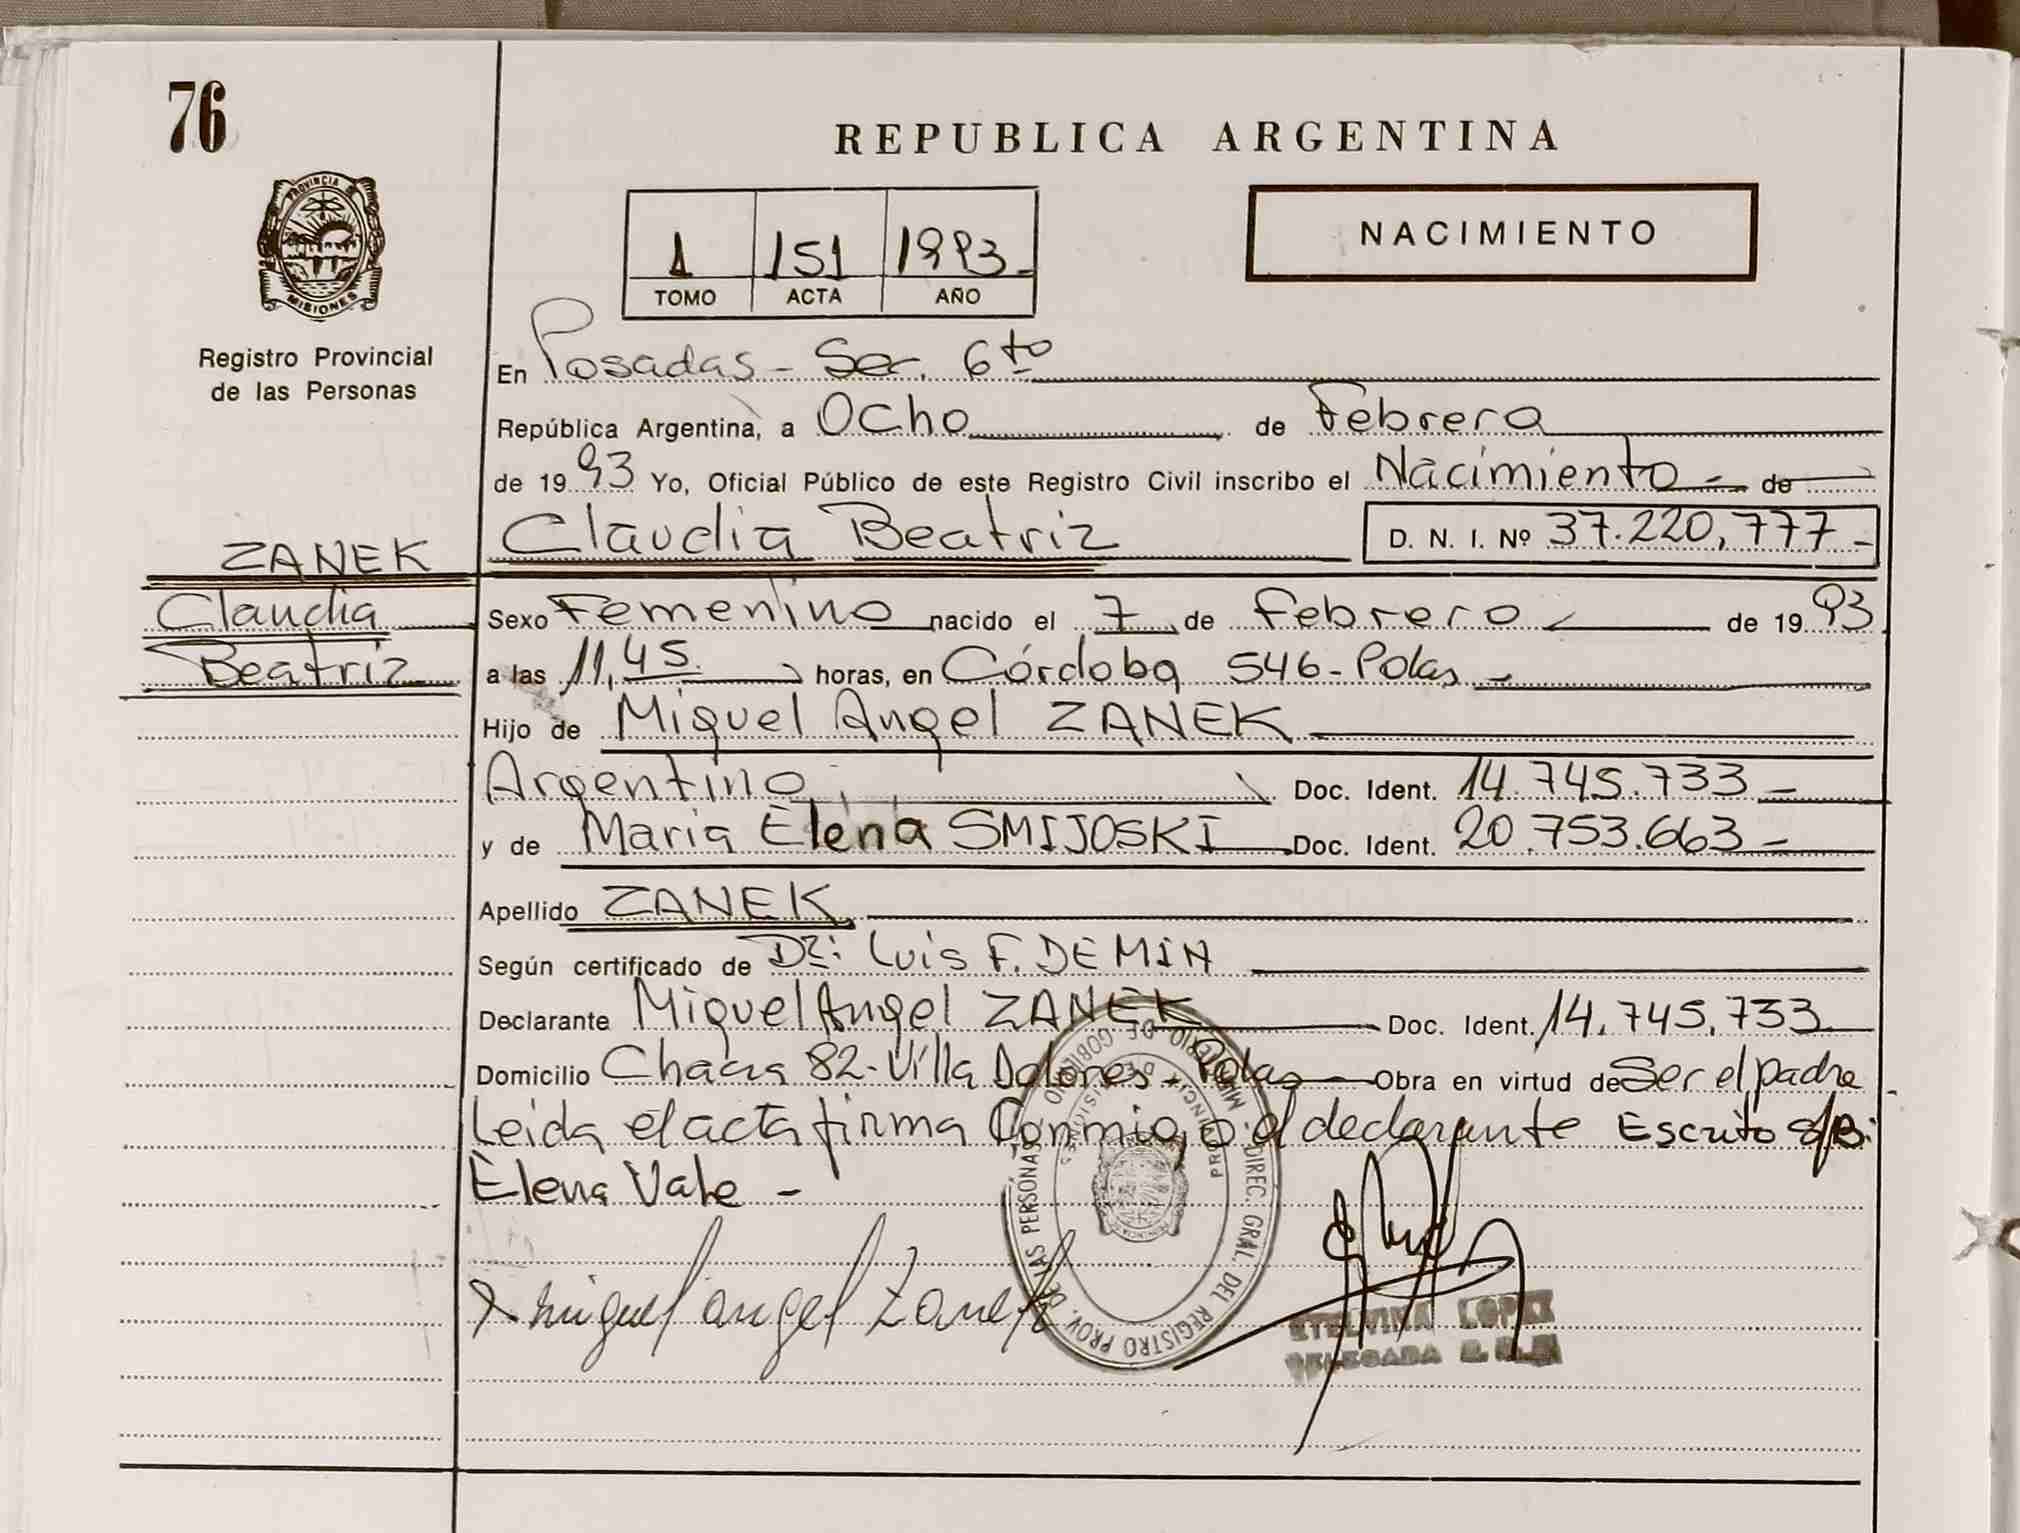 76
REPUBLICA ARGENTINA
PROVINCIA DE
MISIONES
Registro Provincial
de las Personas
1 151 1993
TOMO ACTA AÑO
NACIMIENTO
En Posadas - Sec. 6to
República Argentina, a Ocho de Febrero
de 1993 Yo, Oficial Público de este Registro Civil inscribo el Nacimiento - de
Claudia Beatriz D. N. I. Nº 37.220,777-
ZANEK
Claudia
Beatriz
Sexo Femenino nacido el 7 de Febrero de 1993
a las 11,45 horas, en Córdoba 546 - Pdas -
Hijo de Miguel Angel ZANEK
Argentino Doc. Ident. 14.745.733-
y de Maria Elena SMIJOSKI Doc. Ident. 20.753.663-
Apellido ZANEK
Según certificado de Dr: Luis F. DEMIN
Declarante Miguel Angel ZANEK Doc. Ident. 14.745.733
Domicilio Chacra 82 - Villa Dolores - Pdas Obra en virtud de Ser el padre
Leida el acta firma Conmigo el declarante Escrito s/B:
Elena Vale -
miguel angel Zanek
MINISTERIO DE GOBIERNO
PROVINCIA DE MISIONES
DIREC. GRAL. DEL REGISTRO PROV. DE LAS PERSONAS
ETELVINA LOPEZ
DELEGADA